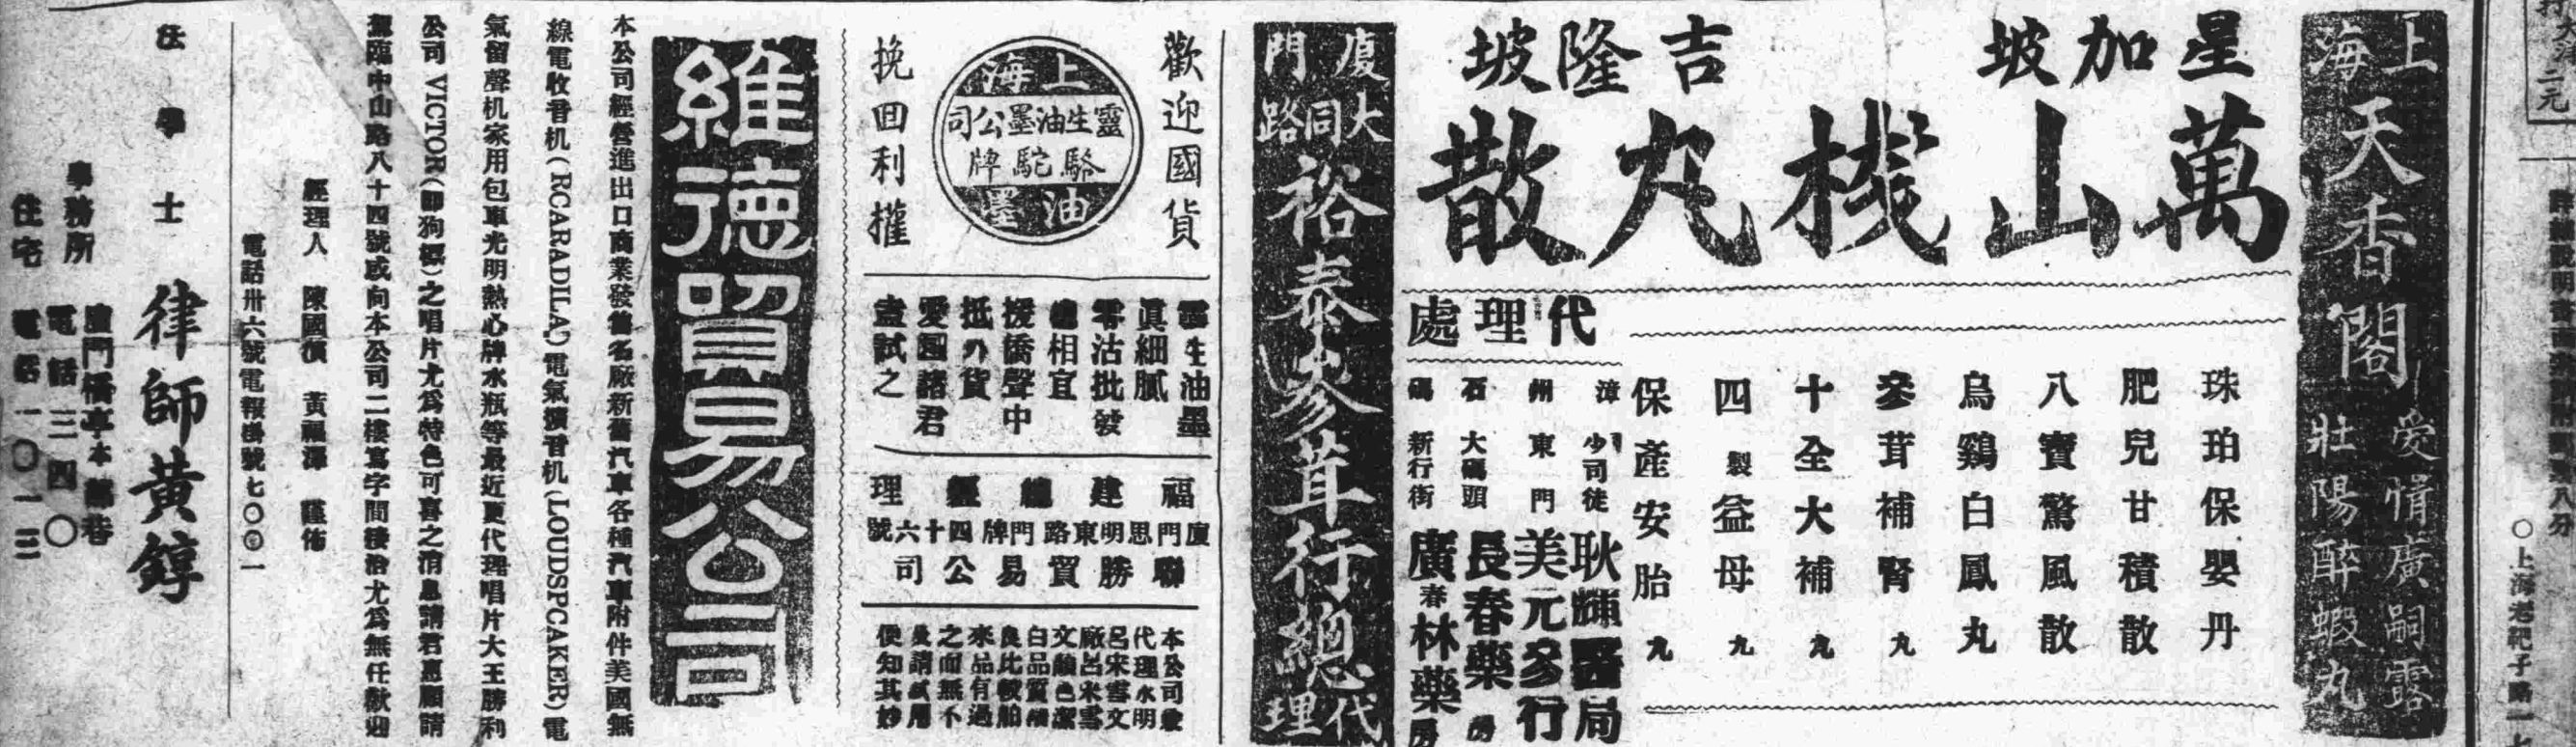 上海
天香閣
愛情廣嗣露
壯陽醉蝦丸
星加坡
吉隆坡
萬山棧丸散
珠珀保嬰丹
肥兒甘積散
八寶驚風散
烏鷄白鳳丸
參茸補腎丸
十全大補丸
四製益母丸
保產安胎丸
代理處
漳州
少司徒 耿輝醫局
東門 美元參行
石碼
大碼頭 長春藥房
新行街 廣春林藥房
廈門
大同路
裕泰參茸行總代理
歡迎國貨
上海
靈生油墨公司
駱駝牌
油墨
挽回利權
靈生油墨
真細膩
零沽批發
總相宜
援僑聲中
抵外貨
愛國諸君
盍試之
福建總經理
廈門思明東路門牌四十六號
聯勝貿易公司
本公司兼
代理水明
呂宋雪文
廠呂宋雪
文顏色潔
白品質
良比較舶
來品有過
之而無不
及請試用
便知其妙
維德貿易公司
本公司經營進出口商業發售名廠新舊汽車各種汽車附件美國無
線電收音机(RCARADILA)電氣擴音机(LOUDSPCAKER)電
氣留聲机家用包車光明熱心牌水瓶等最近更代理唱片大王勝利
公司VICTOR(即狗標)之唱片尤為特色可喜之消息請君惠顧請
駕臨中山路八十四號或向本公司二樓寫字間接洽尤為無任歡迎
經理人 陳國 黃福 謹佈
電話卅六號電報掛號七〇〇一
法學士 律師黃錞
事務所 廈門橋亭本部巷
電話三四〇
住宅 電話一〇一三
〇上海老靶子路一七